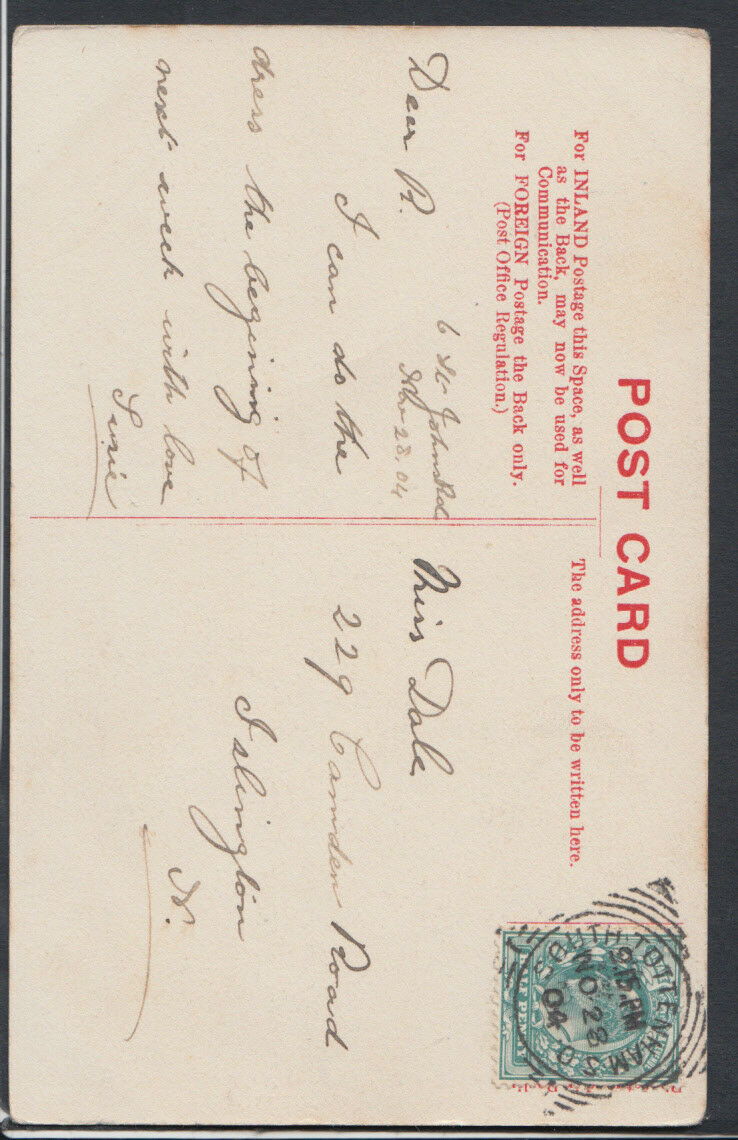 POST CARD
For INLAND Postage this Space, as well
as the Back, may now be used for
Communication.
For FOREIGN Postage the Back only.
(Post Office Regulation.)
The address only to be written here.
6 St Johns Rd
Nov 28. 04
Dear R.
I can do the
dress the begining of
next week with love
Susie
Miss Dale
229 Camden Road
Islington
N.
SOUTH TOTTENHAM S.O
9.15 PM
NO 28
04